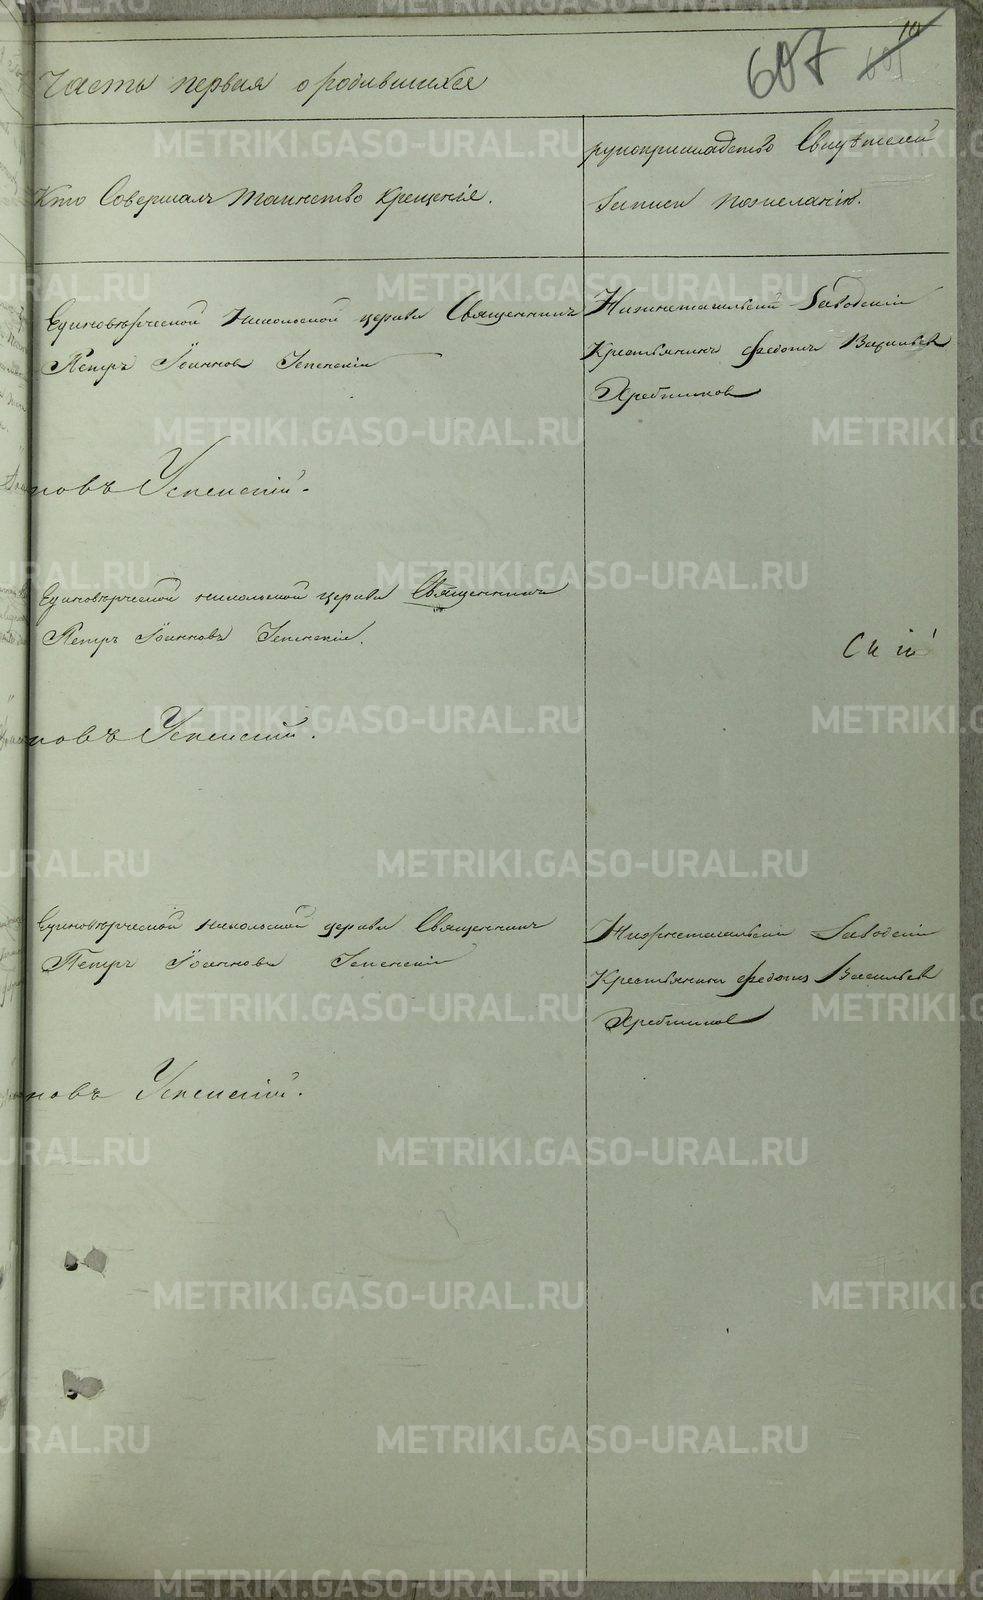 10
607
Часть первая о родившихся
Кто Совершалъ таинство крещенія.
рукоприкладство Свидѣтелей
записи по желанію.
Единовѣрческой Никольской церкви Священникъ
Петръ Іоанновъ Успенскій
Нижнетагильскій Заводскій
Крестьянинъ Федотъ Васильев
Хребтиков
новъ Успенскій.
Единовѣрческой никольской церкви Священникъ
Петръ Іоанновъ Успенскій.
скій
новъ Успенскій.
Единовѣрческой никольской церкви Священникъ
Петръ Іоанновъ Успенскій
Нижнетагильскій Заводскій
Крестьянинъ Федотъ Васильев
Хребтиков
новъ Успенскій.
METRIKI.GASO-URAL.RU